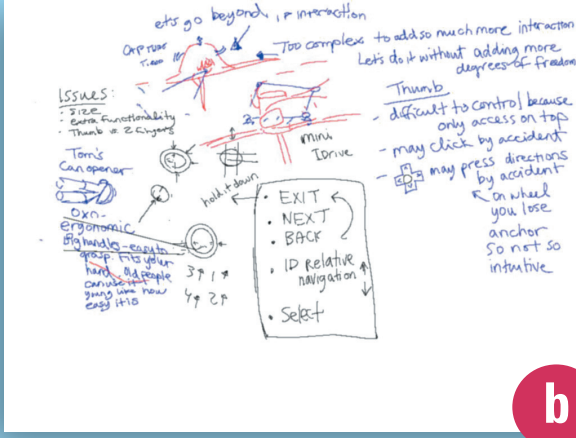 ets go beyond, IP interaction
Too complex to add so much more interaction
Let's do it without adding more
degrees of freedom
Issues:
- Size
- extra functionality
- Thumb vs 2 fingers
Tom's
Can opener
Oxo-
ergonomic
Big handles - easy to
grasp. Fits your
hand. Old people
can use it
young like how
easy it is
mini
IDrive
hold it down
3 1
4 2
- EXIT
- NEXT
- BACK
- ID Relative
navigation
- Select
Thumb
- difficult to control because
only access on top
- may click by accident
- may press directions
by accident
on wheel
you lose
anchor
so not so
intuitive
b